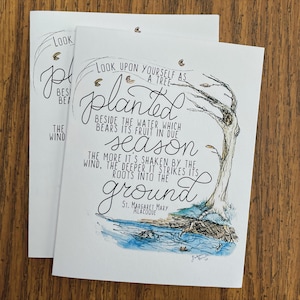 Look upon yourself as
a tree
planted
beside the water which
bears its fruit in due
season
the more it's shaken by the
wind, the deeper it strikes its
roots into the
ground
St. Margaret Mary
Alacoque
Look
planted
besi
bea
the
wind,